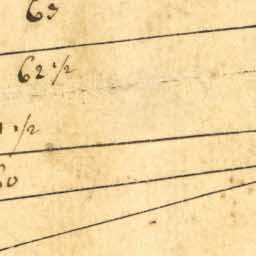 63
62 1/2
1 1/2
60